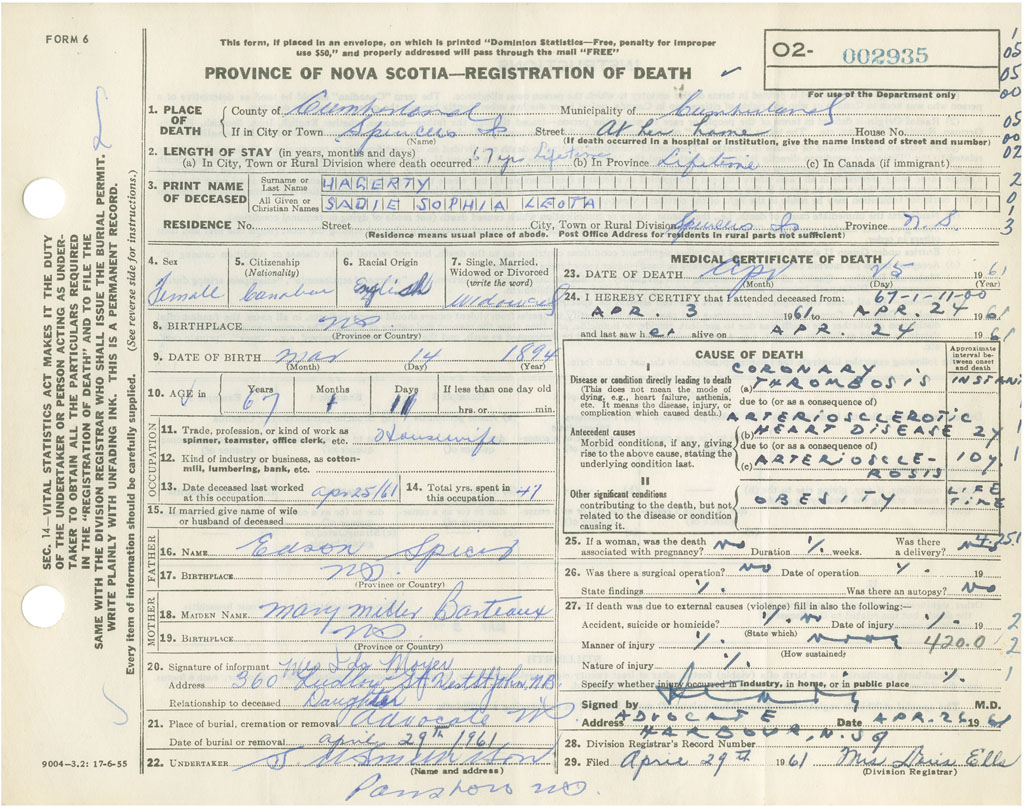 FORM 6
This form, if placed in an envelope, on which is printed "Dominion Statistics—Free, penalty for improper
use $50," and properly addressed will pass through the mail "FREE"
PROVINCE OF NOVA SCOTIA—REGISTRATION OF DEATH
02- 002935
For use of the Department only
1. PLACE OF DEATH
County of Cumberland Municipality of Cumberland
If in City or Town Spencers Is Street At her home House No.
(Name) (If death occurred in a hospital or institution, give the name instead of street and number)
2. LENGTH OF STAY (in years, months and days)
(a) In City, Town or Rural Division where death occurred 67 yr Lifetime (b) in Province Lifetime (c) In Canada (if immigrant)
3. PRINT NAME OF DECEASED
Surname or Last Name HAGERTY
All Given or Christian Names SADIE SOPHIA LEOTA
RESIDENCE No. Street City, Town or Rural Division Spencers Is Province N.S.
(Residence means usual place of abode. Post Office Address for residents in rural parts not sufficient)
4. Sex Female
5. Citizenship (Nationality) Canadian
6. Racial Origin English
7. Single, Married, Widowed or Divorced (write the word) Widowed
8. BIRTHPLACE NS
(Province or Country)
9. DATE OF BIRTH Mar 14 1894
(Month) (Day) (Year)
10. AGE in Years 67 Months 1 Days 11 If less than one day old
hrs. or min.
OCCUPATION
11. Trade, profession, or kind of work as
spinner, teamster, office clerk, etc. Housewife
12. Kind of industry or business, as cotton-
mill, lumbering, bank, etc.
13. Date deceased last worked
at this occupation Apr 25/61
14. Total yrs. spent in
this occupation 47
15. If married give name of wife
or husband of deceased
FATHER
16. NAME Edson Spicer
17. BIRTHPLACE NS.
(Province or Country)
MOTHER
18. MAIDEN NAME Mary Miller Barteaux
19. BIRTHPLACE NS.
(Province or Country)
20. Signature of informant Mrs Ida Moyer
Address 360 Ludlow St West St John, N.B.
Relationship to deceased Daughter
21. Place of burial, cremation or removal Advocate NS
Date of burial or removal April 29th 1961
22. UNDERTAKER
(Name and address)
Parrsboro NS.
MEDICAL CERTIFICATE OF DEATH
23. DATE OF DEATH Apr 25 1961
(Month) (Day) (Year)
67-1-11-00
24. I HEREBY CERTIFY that I attended deceased from:
APR. 3 1961 to APR. 24 1961
and last saw her alive on APR. 24 1961
CAUSE OF DEATH
Approximate interval between onset and death
I
Disease or condition directly leading to death
(This does not mean the mode of
dying, e.g., heart failure, asthenia,
etc. It means the disease, injury, or
complication which caused death.)
CORONARY
(a) THROMBOSIS INSTANT
due to (or as a consequence of)
Antecedent causes
Morbid conditions, if any, giving
rise to the above cause, stating the
underlying condition last.
ARTERIOSCLEROTIC
(b) HEART DISEASE 2y
due to (or as a consequence of)
(c) ARTERIOSCLE-
ROSIS 10y.
II
Other significant conditions
contributing to the death, but not
related to the disease or condition
causing it.
OBESITY LIFE TIME
25. If a woman, was the death
associated with pregnancy? No Duration weeks. Was there
a delivery? No
26. Was there a surgical operation? No Date of operation 19
State findings Was there an autopsy? No
27. If death was due to external causes (violence) fill in also the following:—
Accident, suicide or homicide? Date of injury 19
(State which)
Manner of injury 420.0
(How sustained)
Nature of injury
Specify whether injury occurred in industry, in home, or in public place
Signed by M.D.
Address ADVOCATE Date APR. 26 1961
HARBOUR, N.S.
28. Division Registrar's Record Number 9
29. Filed April 29th 1961 Mrs Doris Ells
(Division Registrar)
SEC. 14—VITAL STATISTICS ACT MAKES IT THE DUTY
OF THE UNDERTAKER OR PERSON ACTING AS UNDER-
TAKER TO OBTAIN ALL THE PARTICULARS REQUIRED
IN THE "REGISTRATION OF DEATH" AND TO FILE THE
SAME WITH THE DIVISION REGISTRAR WHO SHALL ISSUE THE BURIAL PERMIT.
WRITE PLAINLY WITH UNFADING INK. THIS IS A PERMANENT RECORD.
Every item of information should be carefully supplied. (See reverse side for instructions.)
9004-3.2: 17-6-55